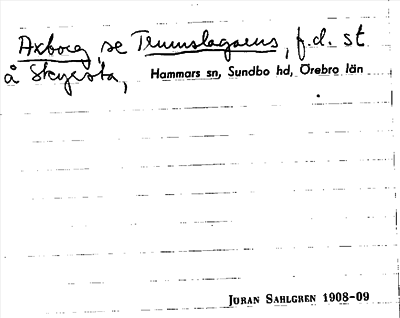 Axborg, se Trumslagarens, f.d. st
å Skyrsta, Hammars sn, Sundbo hd, Örebro län
JÖRAN SAHLGREN 1908-09